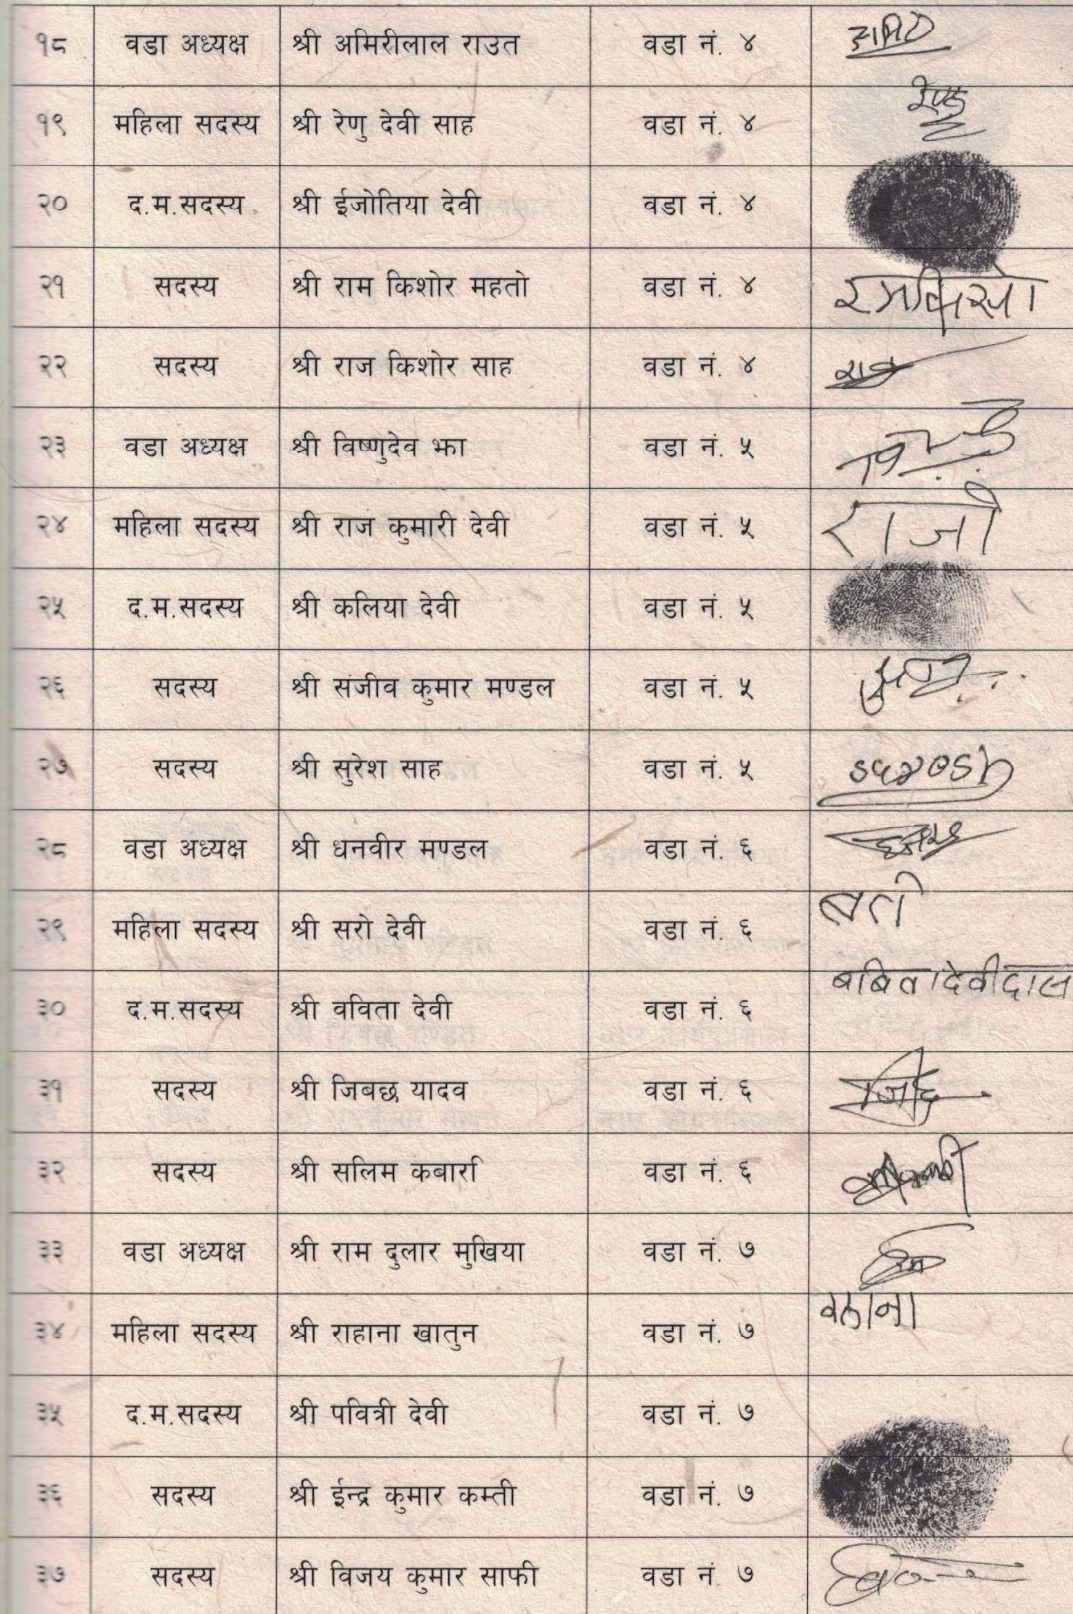 १८ वडा अध्यक्ष श्री अमिरीलाल राउत वडा नं. ४
१९ महिला सदस्य श्री रेणु देवी साह वडा नं. ४ रेणु
२० द.म.सदस्य. श्री ईजोतिया देवी वडा नं. ४
२१ सदस्य श्री राम किशोर महतो वडा नं. ४
२२ सदस्य श्री राज किशोर साह वडा नं. ४
२३ वडा अध्यक्ष श्री विष्णुदेव झा वडा नं. ५
२४ महिला सदस्य श्री राज कुमारी देवी वडा नं. ५
२५ द.म.सदस्य श्री कलिया देवी वडा नं. ५
२६ सदस्य श्री संजीव कुमार मण्डल वडा नं. ५
२७ सदस्य श्री सुरेश साह वडा नं. ५
२८ वडा अध्यक्ष श्री धनवीर मण्डल वडा नं. ६
२९ महिला सदस्य श्री सरो देवी वडा नं. ६
३० द.म.सदस्य श्री वविता देवी वडा नं. ६ बबिता देवी दास
३१ सदस्य श्री जिबछ यादव वडा नं. ६
३२ सदस्य श्री सलिम कबारी वडा नं. ६
३३ वडा अध्यक्ष श्री राम दुलार मुखिया वडा नं. ७
३४ महिला सदस्य श्री राहाना खातुन वडा नं. ७
३५ द.म.सदस्य श्री पवित्री देवी वडा नं. ७
३६ सदस्य श्री ईन्द्र कुमार कम्ती वडा नं. ७
३७ सदस्य श्री विजय कुमार साफी वडा नं. ७